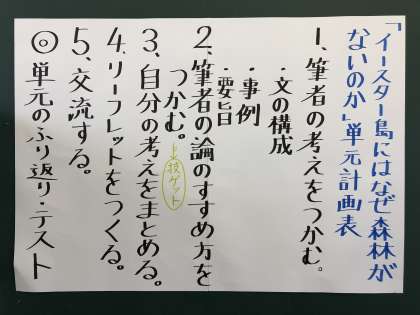 「イースター島にはなぜ森林が
ないのか」単元計画表
1、筆者の考えをつかむ。
・文の構成
・事例
・要旨
2、筆者の論のすすめ方を
つかむ。
→技ゲット
3、自分の考えをまとめる。
4、リーフレットをつくる。
5、交流する。
◎単元のふり返り・テスト